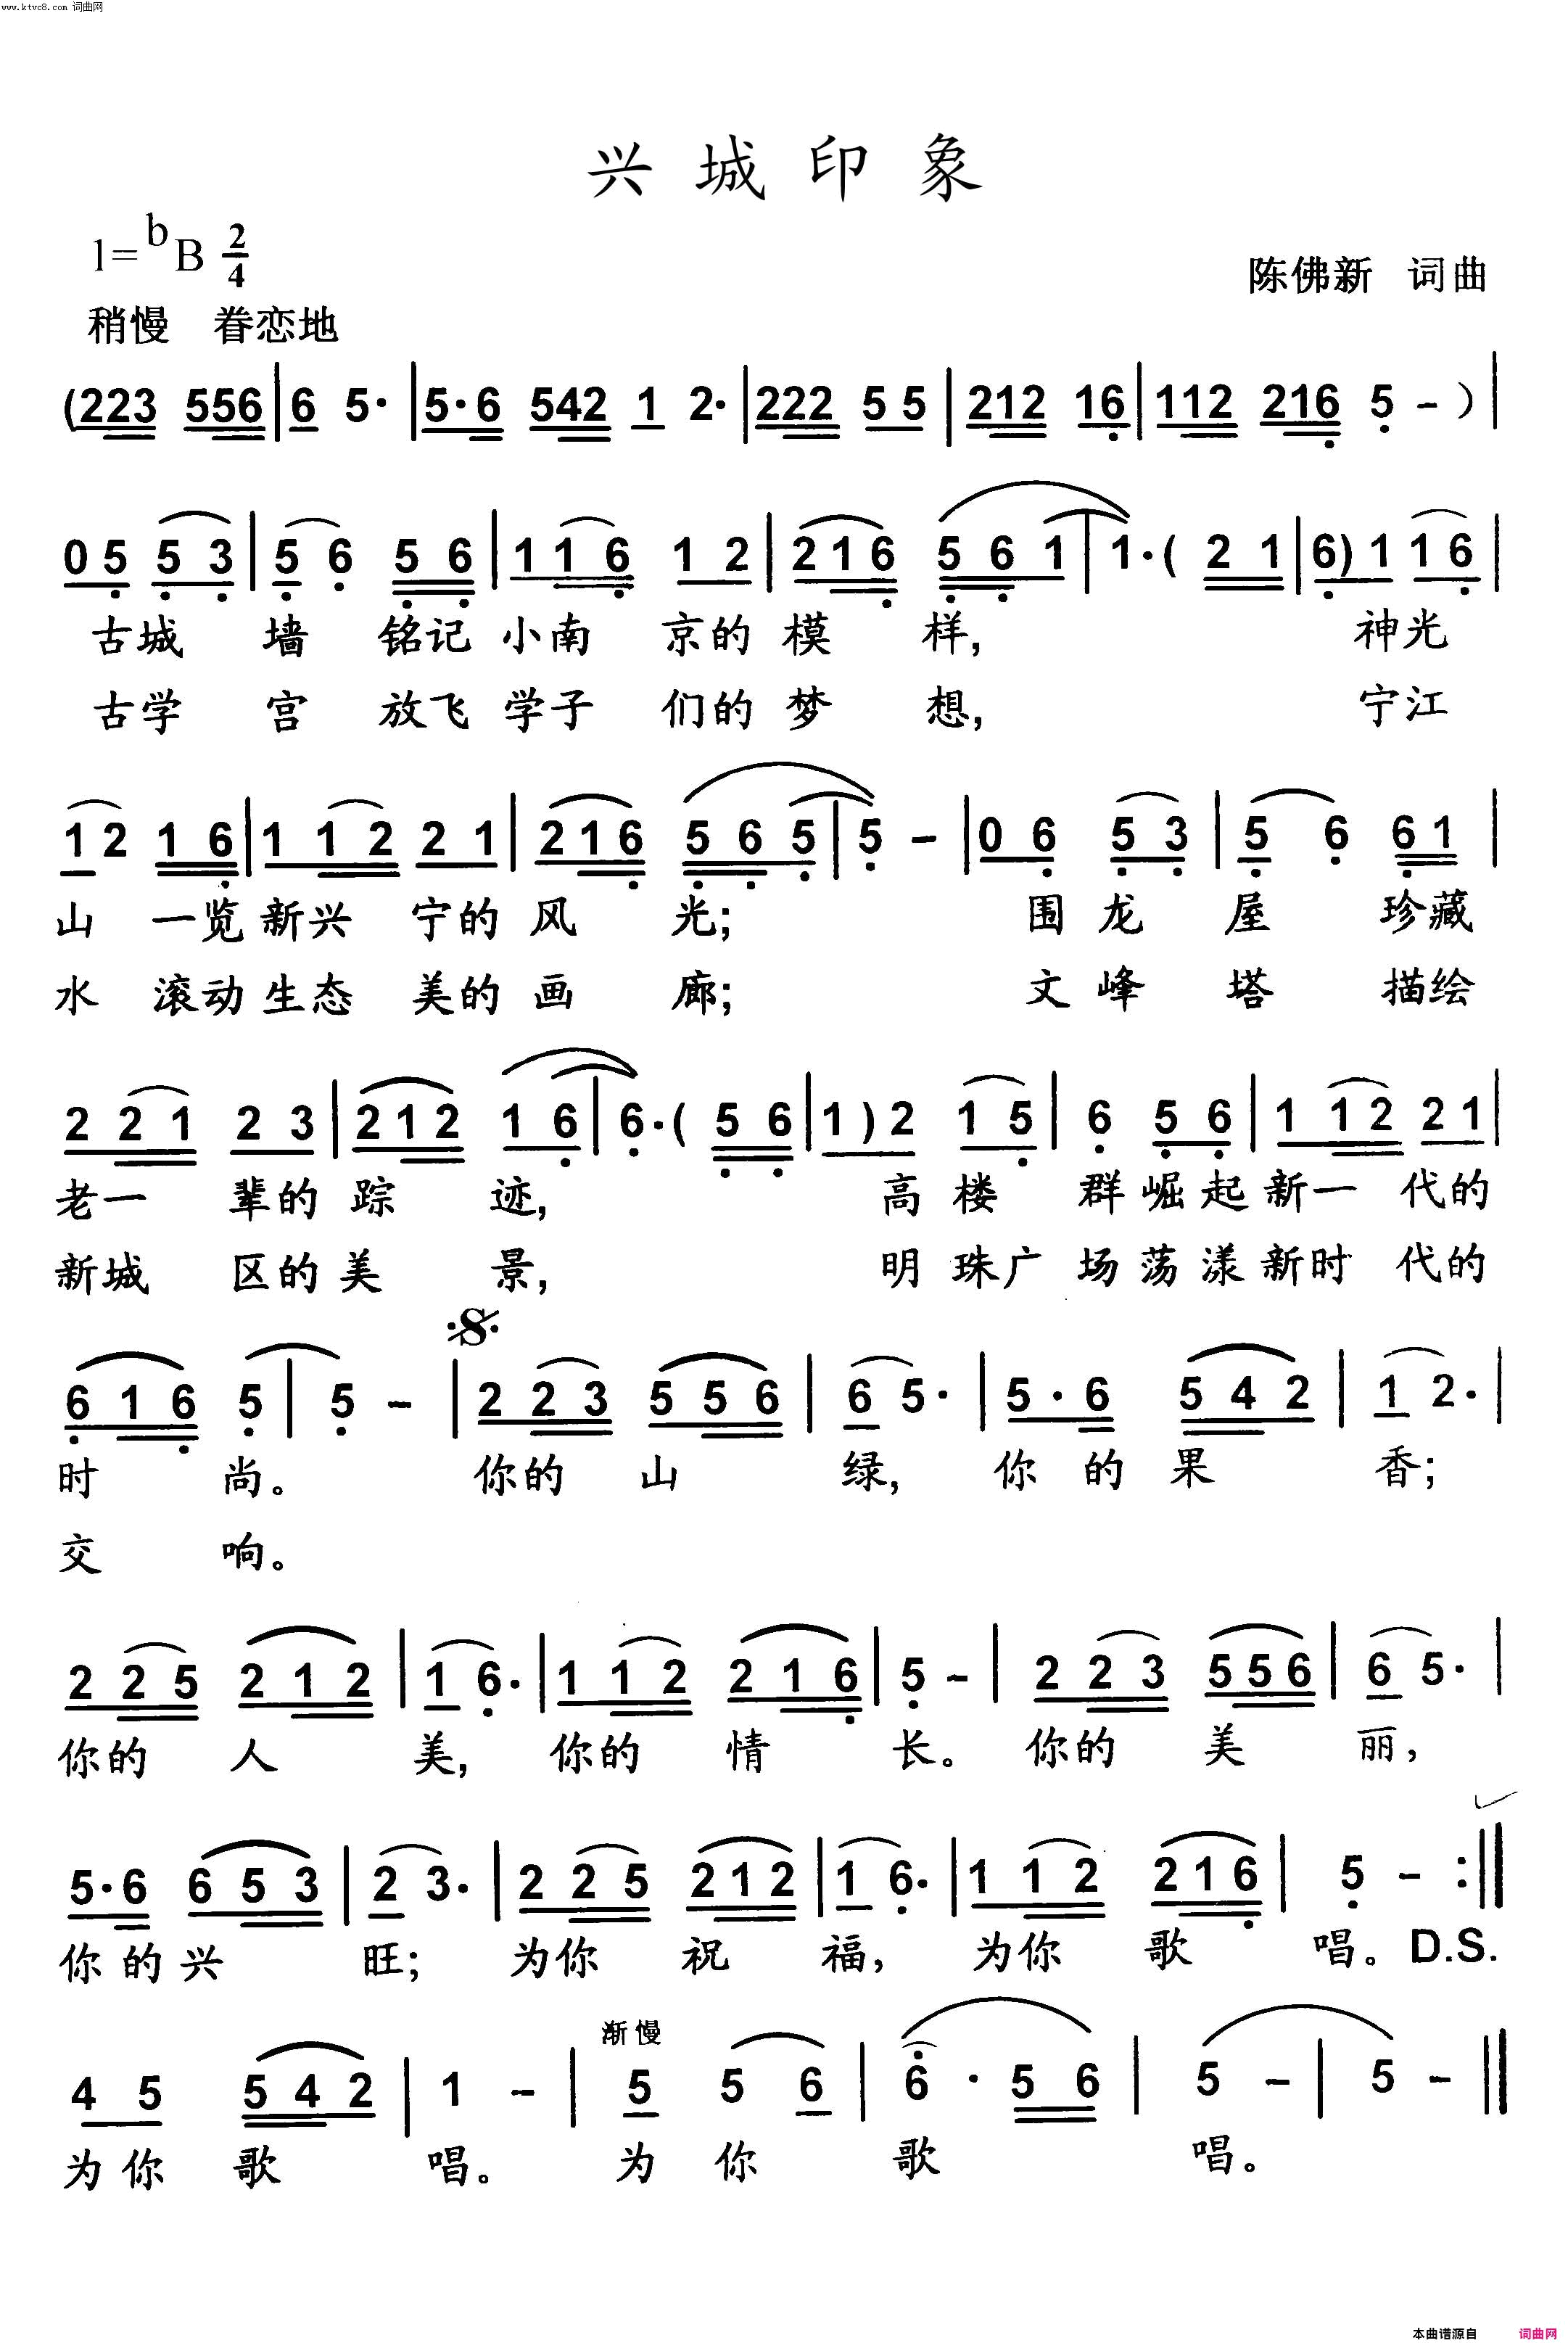 www.ktvc8.com 词曲网
兴城印象
1=bB 2/4
陈佛新 词曲
稍慢 眷恋地
(223 556|6 5·|5·6 542 1 2·|222 55|212 16|112 216 5 -)|
0 5 5 3|5 6 5 6|1 1 6 1 2|2 1 6 5 6 1|1·(2 1|6)1 1 6|
古城 墙 铭记小南 京的模 样, 神光
古学 宫 放飞学子 们的梦 想, 宁江
1 2 1 6|1 1 2 2 1|2 1 6 5 6 5|5 -|0 6 5 3|5 6 6 1|
山 一览新兴 宁的风 光; 围龙 屋 珍藏
水 滚动生态 美的画 廊; 文峰 塔 描绘
2 2 1 2 3|2 1 2 1 6|6·(5 6|1)2 1 5|6 5 6|1 1 2 2 1|
老一 辈的踪 迹, 高楼 群崛起新一 代的
新城 区的美 景, 明珠广 场荡漾新时 代的
6 1 6 5|5 -|2 2 3 5 5 6|6 5·|5·6 5 4 2|1 2·|
时 尚。 你的 山 绿, 你的果 香;
交 响。
2 2 5 2 1 2|1 6·|1 1 2 2 1 6|5 -|2 2 3 5 5 6|6 5·|
你的 人 美, 你的 情 长。 你的 美 丽,
5·6 6 5 3|2 3·|2 2 5 2 1 2|1 6·|1 1 2 2 1 6|5 - :||
你的兴 旺; 为你 祝 福, 为你 歌 唱。D.S.
渐慢
4 5 5 4 2|1 -|5 5 6|6·5 6|5 -|5 -||
为你 歌 唱。 为 你 歌 唱。
本曲谱源自 词曲网